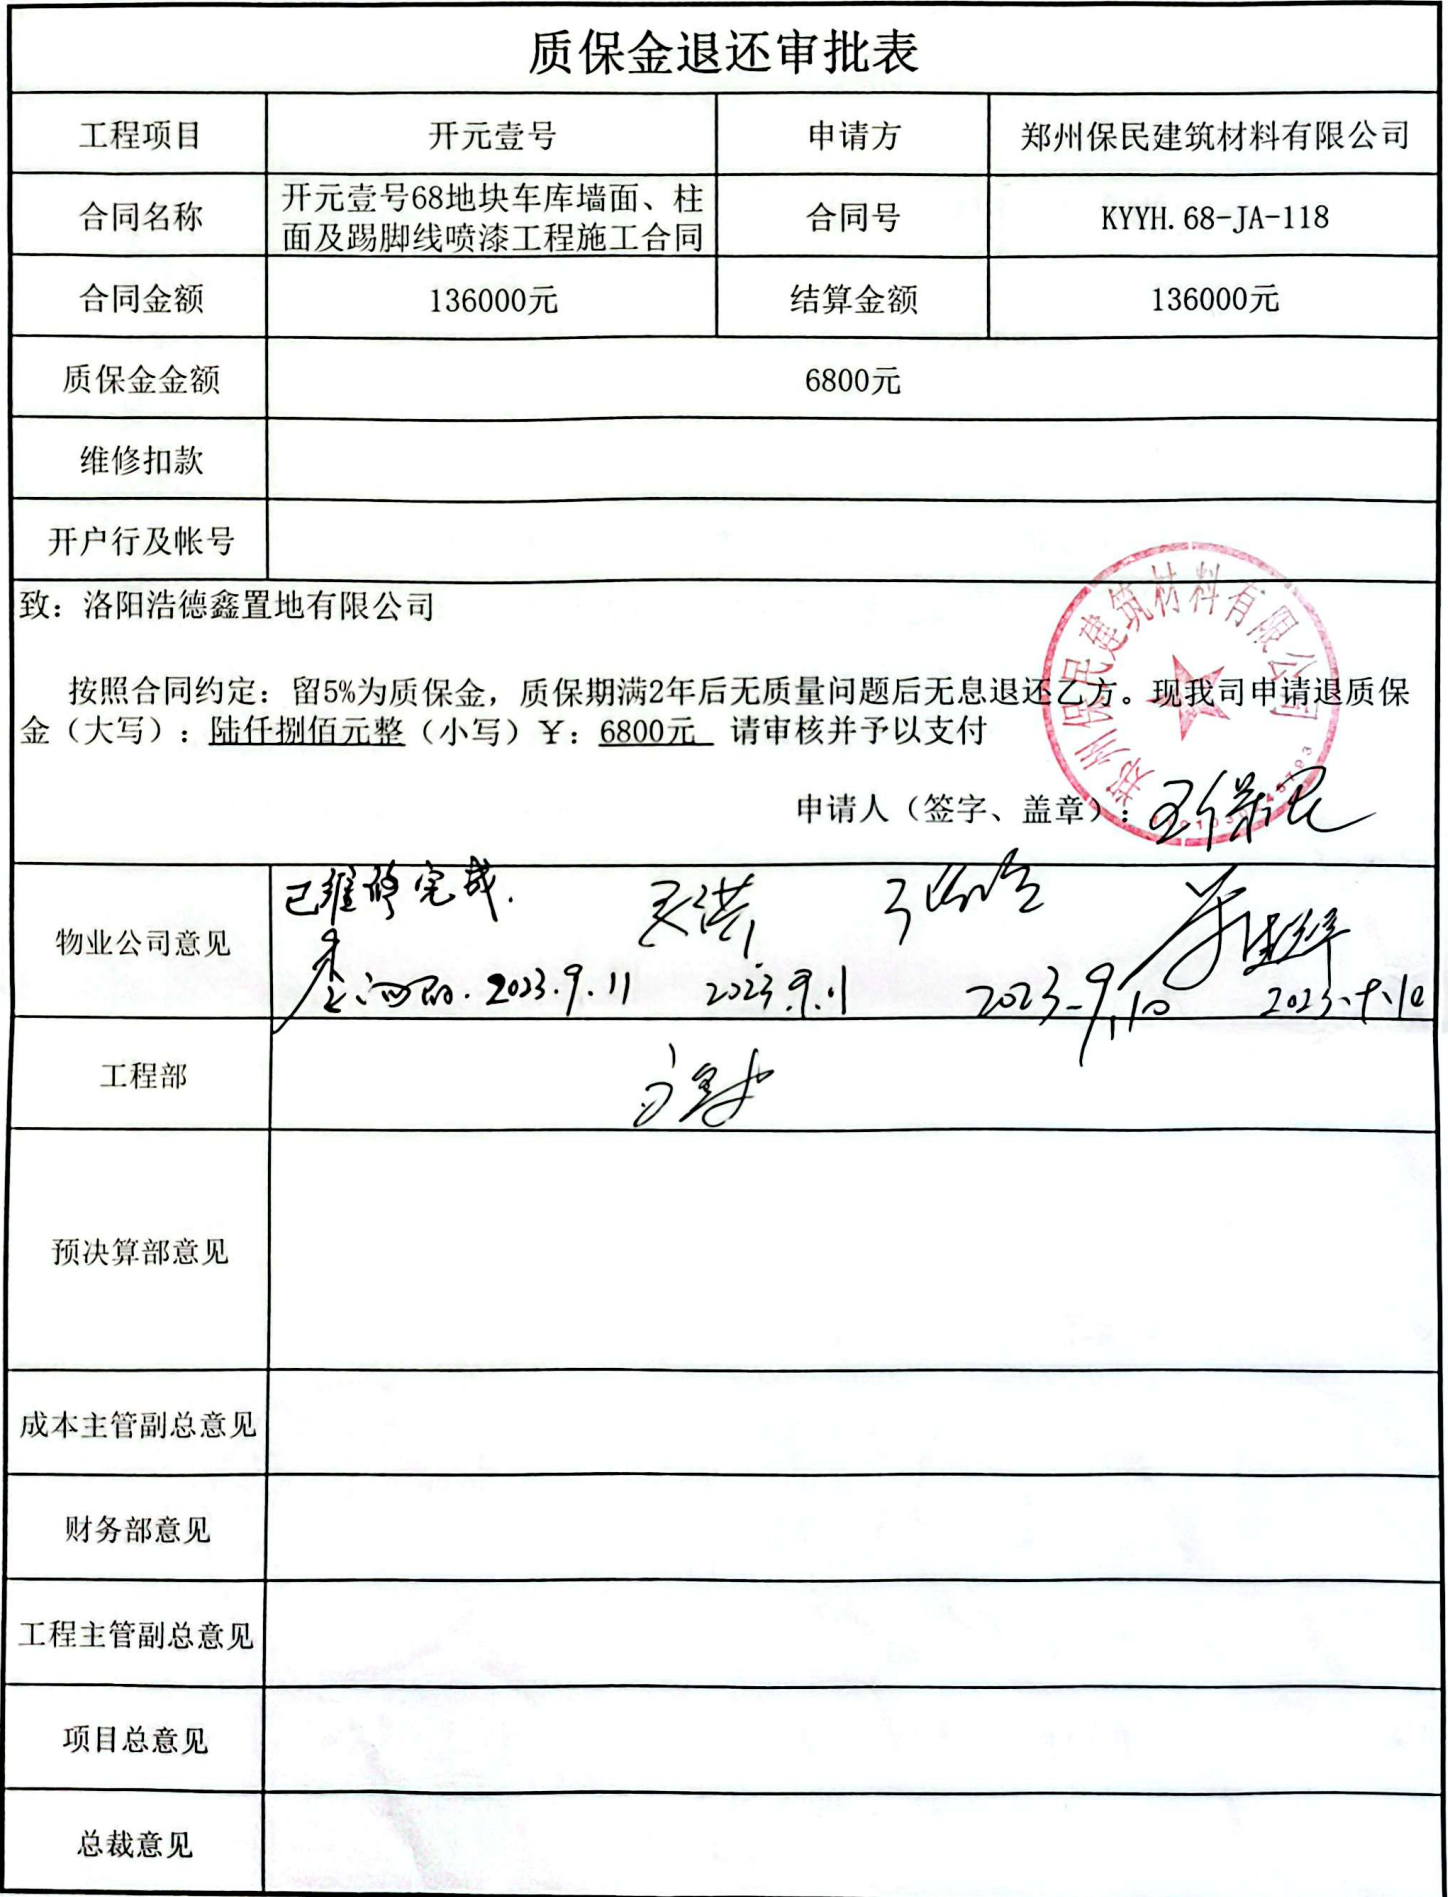 质保金退还审批表
工程项目 开元壹号 申请方 郑州保民建筑材料有限公司
合同名称 开元壹号68地块车库墙面、柱
面及踢脚线喷漆工程施工合同 合同号 KYYH.68-JA-118
合同金额 136000元 结算金额 136000元
质保金金额 6800元
维修扣款
开户行及帐号
致：洛阳浩德鑫置地有限公司
按照合同约定：留5%为质保金，质保期满2年后无质量问题后无息退还乙方。现我司申请退质保
金（大写）：陆仟捌佰元整（小写）￥：6800元 请审核并予以支付
郑州保民建筑材料有限公司
申请人（签字、盖章）：王保民
已维修完成.
物业公司意见
2023.9.11 2023.9.11 2023.9.10
工程部
预决算部意见
成本主管副总意见
财务部意见
工程主管副总意见
项目总意见
总裁意见